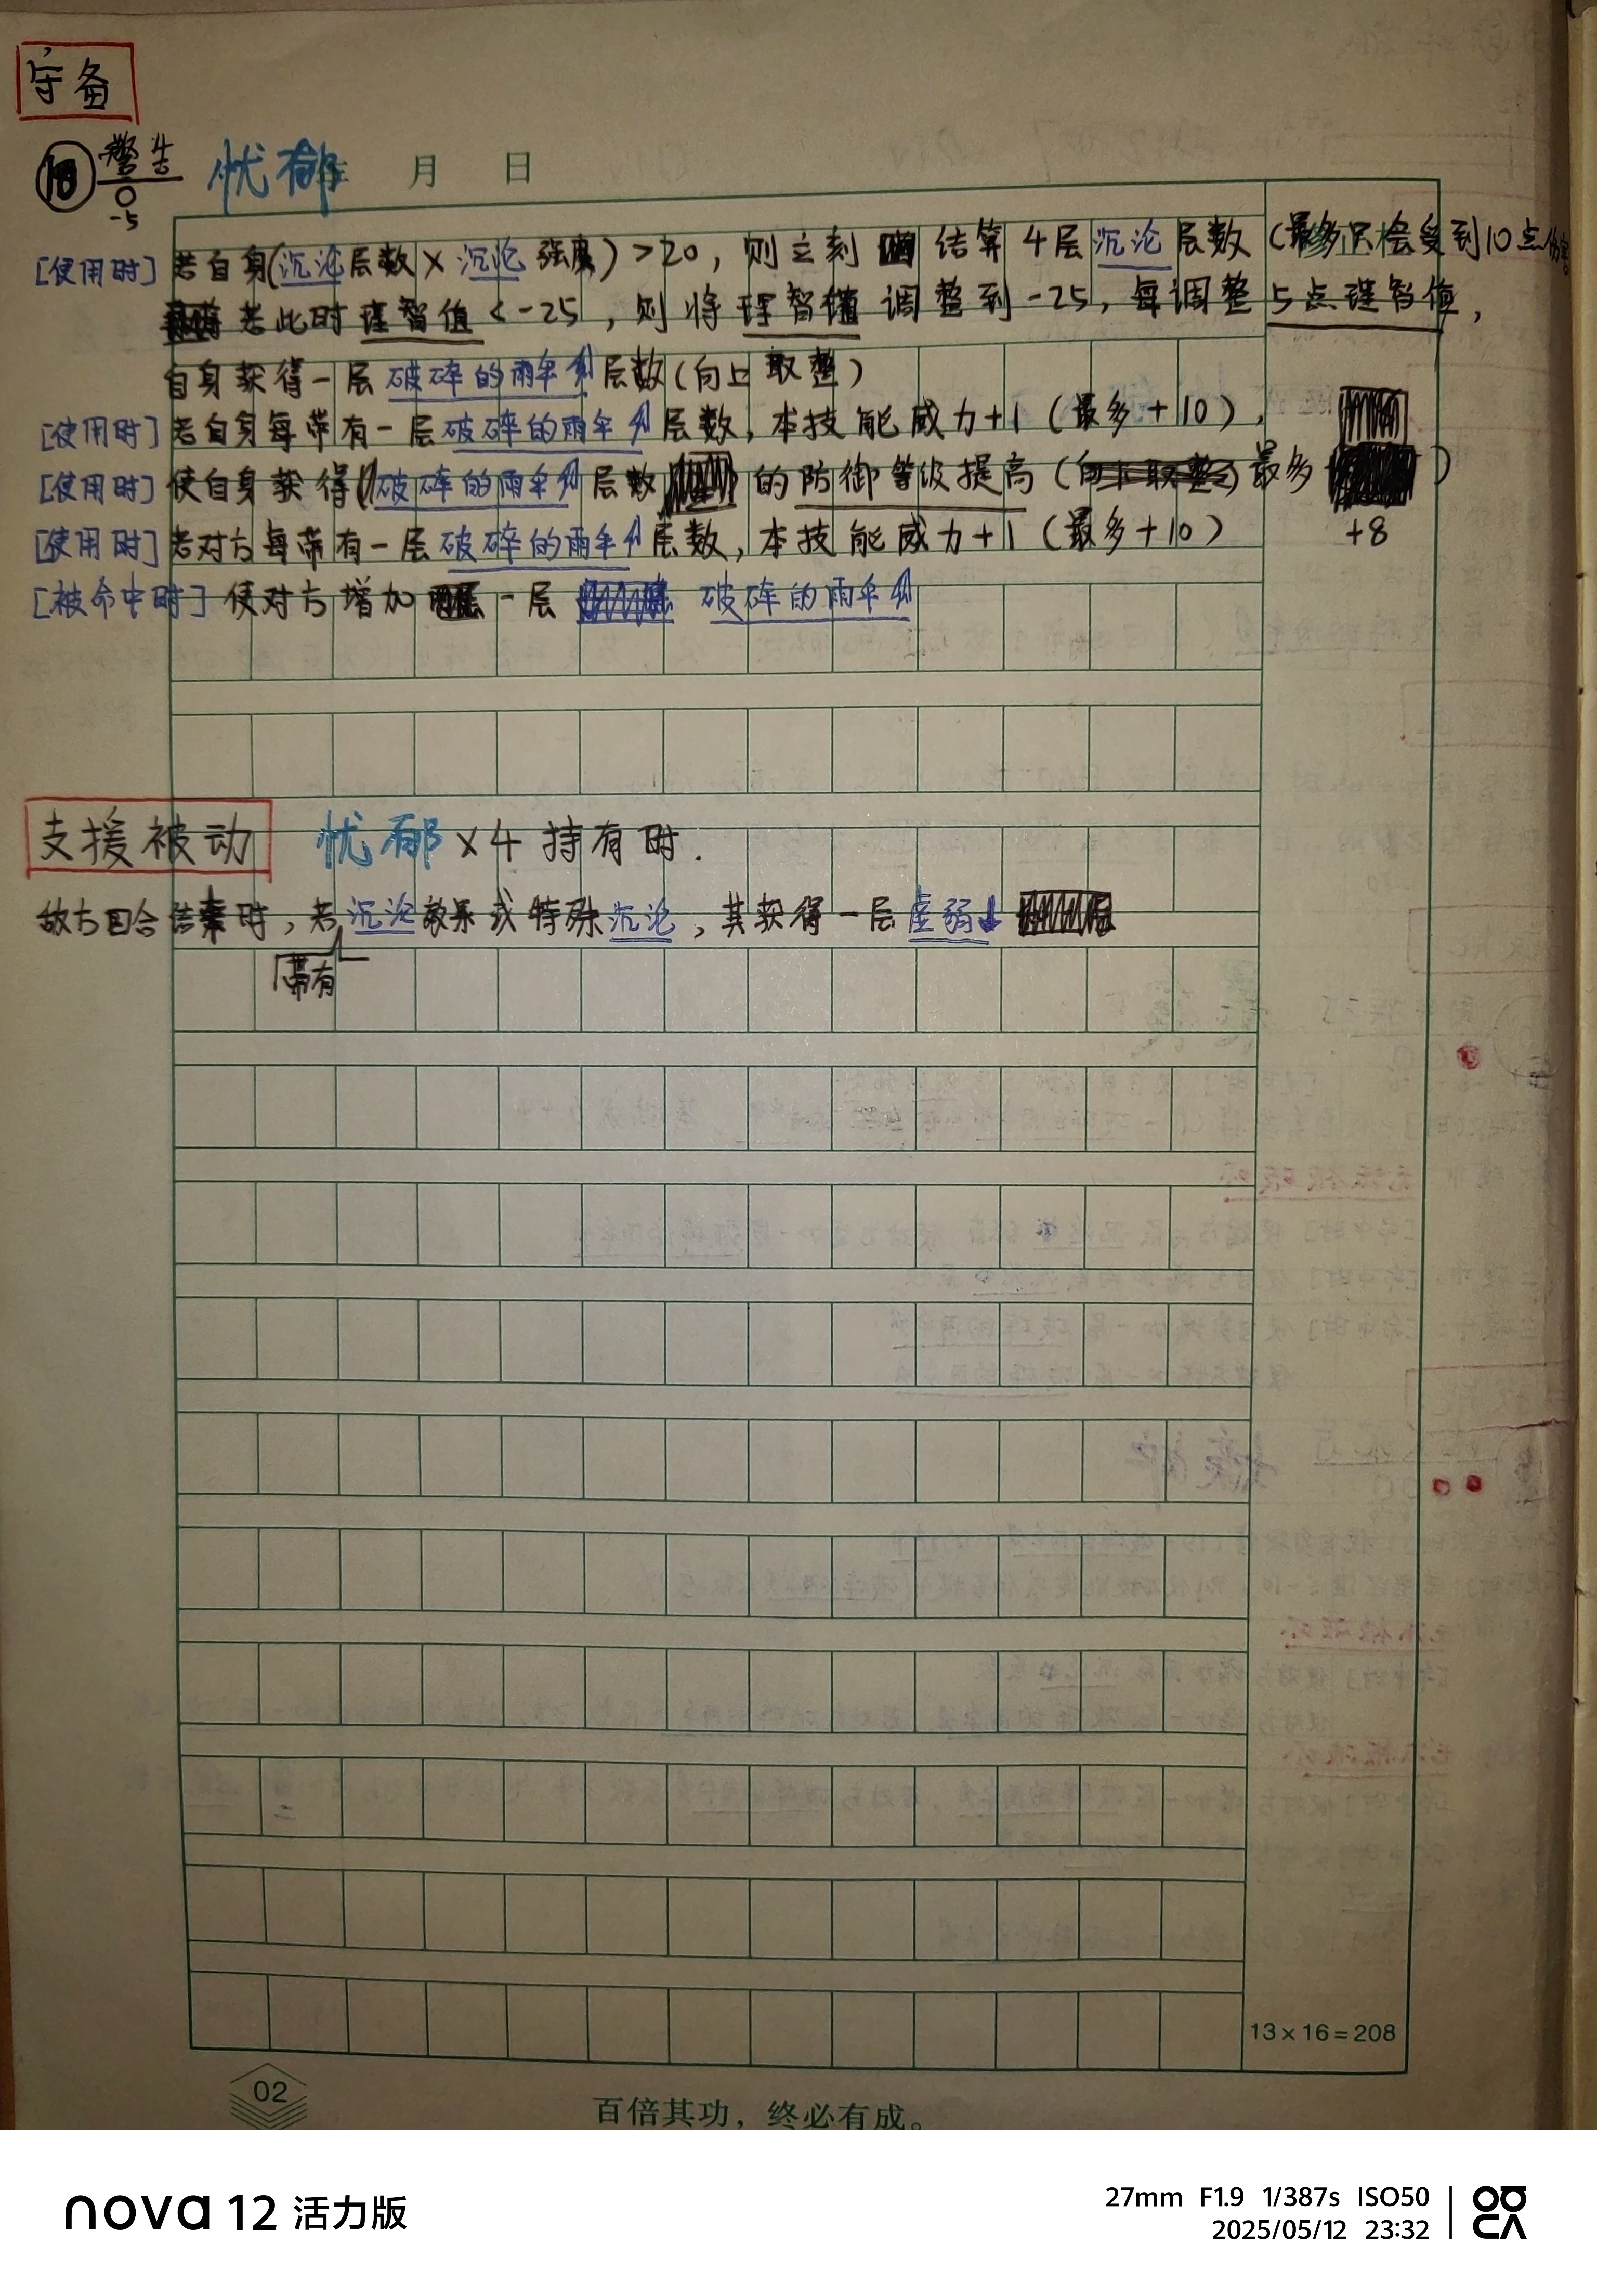 守备
警告
忧郁 月 日
0
-5
[使用时] 若自身(沉沦层数×沉沦强度)>20，则立刻 结算4层沉沦层数(最多只会受到10点伤害
若此时理智值<-25，则将理智值调整到-25，每调整5点理智值，
自身获得一层破碎的雨伞层数(向上取整)
[使用时] 若自身每带有一层破碎的雨伞层数，本技能威力+1(最多+10).
[使用时] 使自身获得(破碎的雨伞层数)的防御等级提高( 最多 )
+8
[使用时] 若对方每带有一层破碎的雨伞层数，本技能威力+1(最多+10)
[被命中时] 使对方增加 一层 破碎的雨伞
支援被动 忧郁×4 持有时.
敌方回合结束时，若沉沦效果或特殊沉沦，其获得一层虚弱
带有
13×16=208
02
百倍其功，终必有成。
nova 12 活力版
27mm F1.9 1/387s ISO50
2025/05/12 23:32